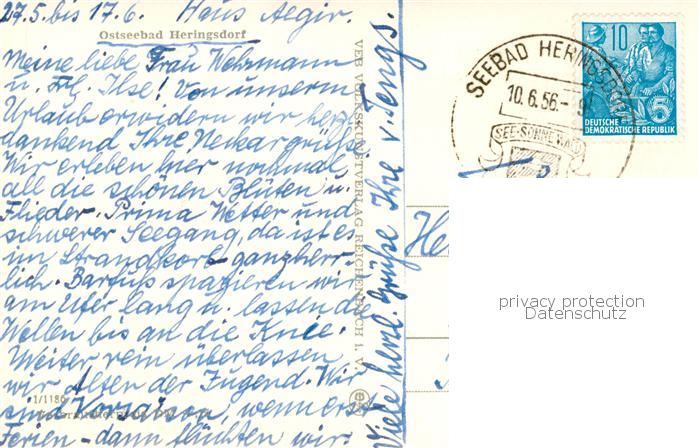 27.5. bis 17.6. Haus Aegir.
Ostseebad Heringsdorf
Meine liebe Frau Wehrmann
u. Frl. Ilse! Von unserm
Urlaub erwidern wir herz
dankend Ihre Neckargrüße
Wir erleben hier nochmal
all die schönen Blüten u.
Flieder. Prima Wetter und
schwerer Seegang, da ist es
im Strandkorb ganz herr-
lich. Barfuß spazieren wir
am Ufer lang u. lassen die
Wellen bis an die Knie.
Weiter rein überlassen
wir Alten der Jugend. Wir
sind Vorsaison, wenn erst
Ferien - dann flüchten wir.
1/1186
VEB VOLKSKUNSTVERLAG REICHENBACH I. V.
Viele herzl. Grüße Ihre v.
SEEBAD HERINGSDORF
10.6.56.-9
SEE-SONNE-WALD
10
5
DEUTSCHE
DEMOKRATISCHE REPUBLIK
He
privacy protection
Datenschutz